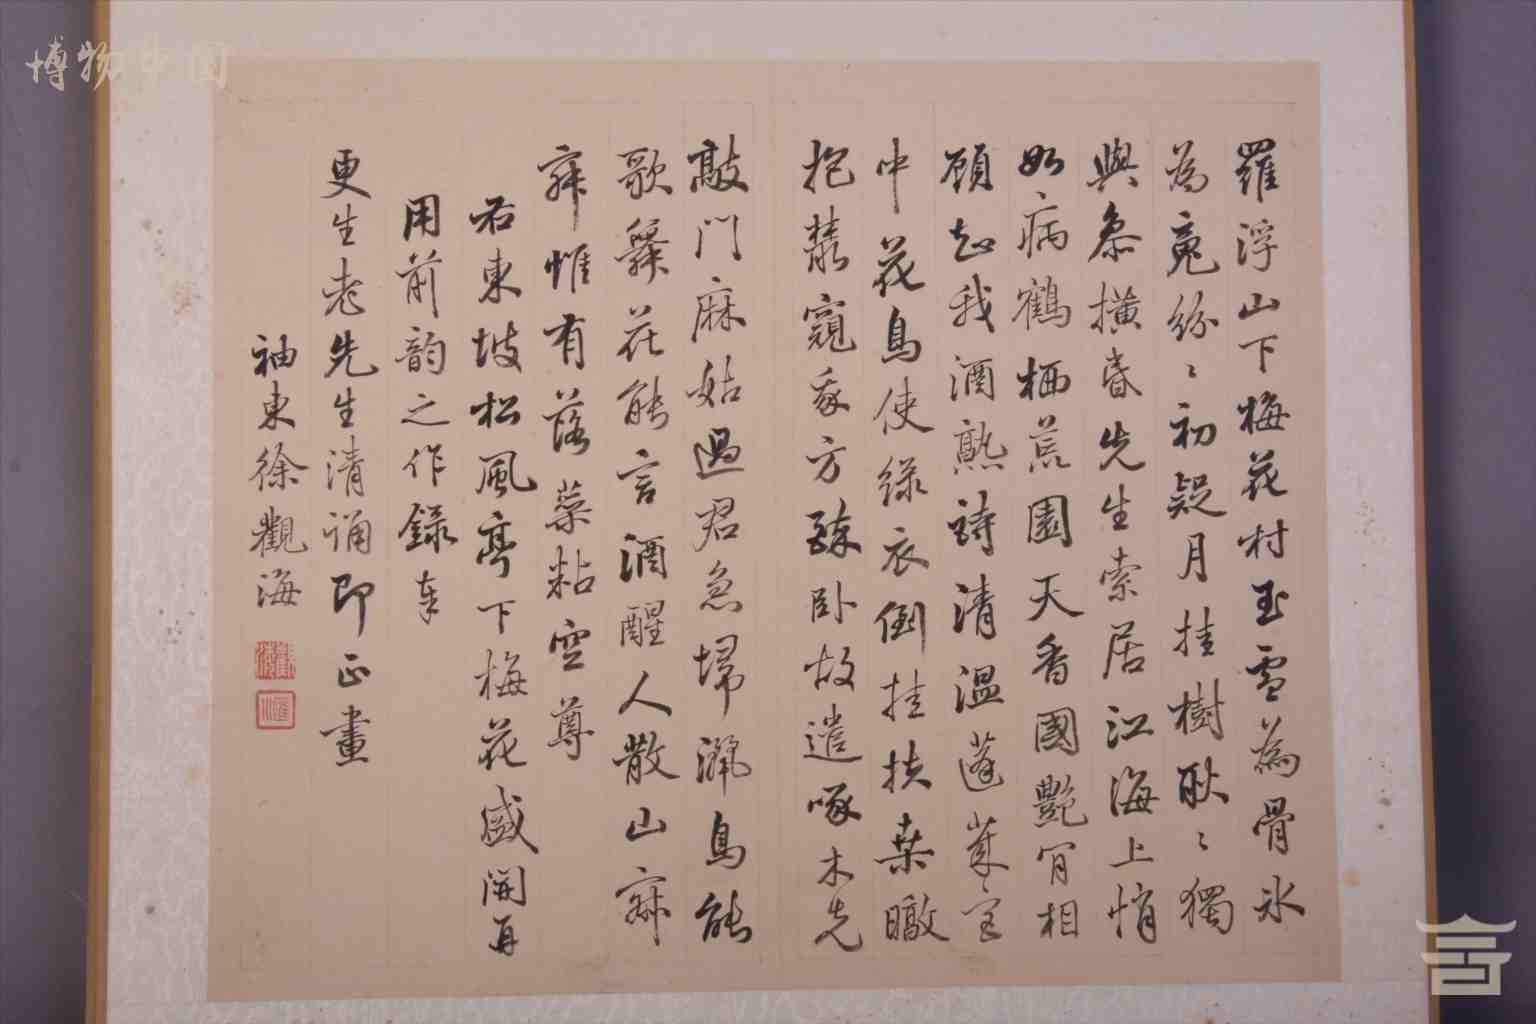 羅浮山下梅花村玉雪為骨冰
為䰟紛〻初疑月挂樹耿〻獨
與參橫昏先生索居江海上悄
如病鶴栖荒園天香國艷肎相
顧知我酒熟詩清温蓬萊宮
中花鳥使綠衣倒挂扶桑暾
抱叢窺我方醉臥故遣啄木先
敲門麻姑過君急埽灑鳥能
歌舞花能言酒醒人散山寂
寂惟有落蘂粘空尊
右東坡松風亭下梅花盛開再
用前韵之作錄奉
更生老先生清誦即正畫
袖東徐觀海
博物中国